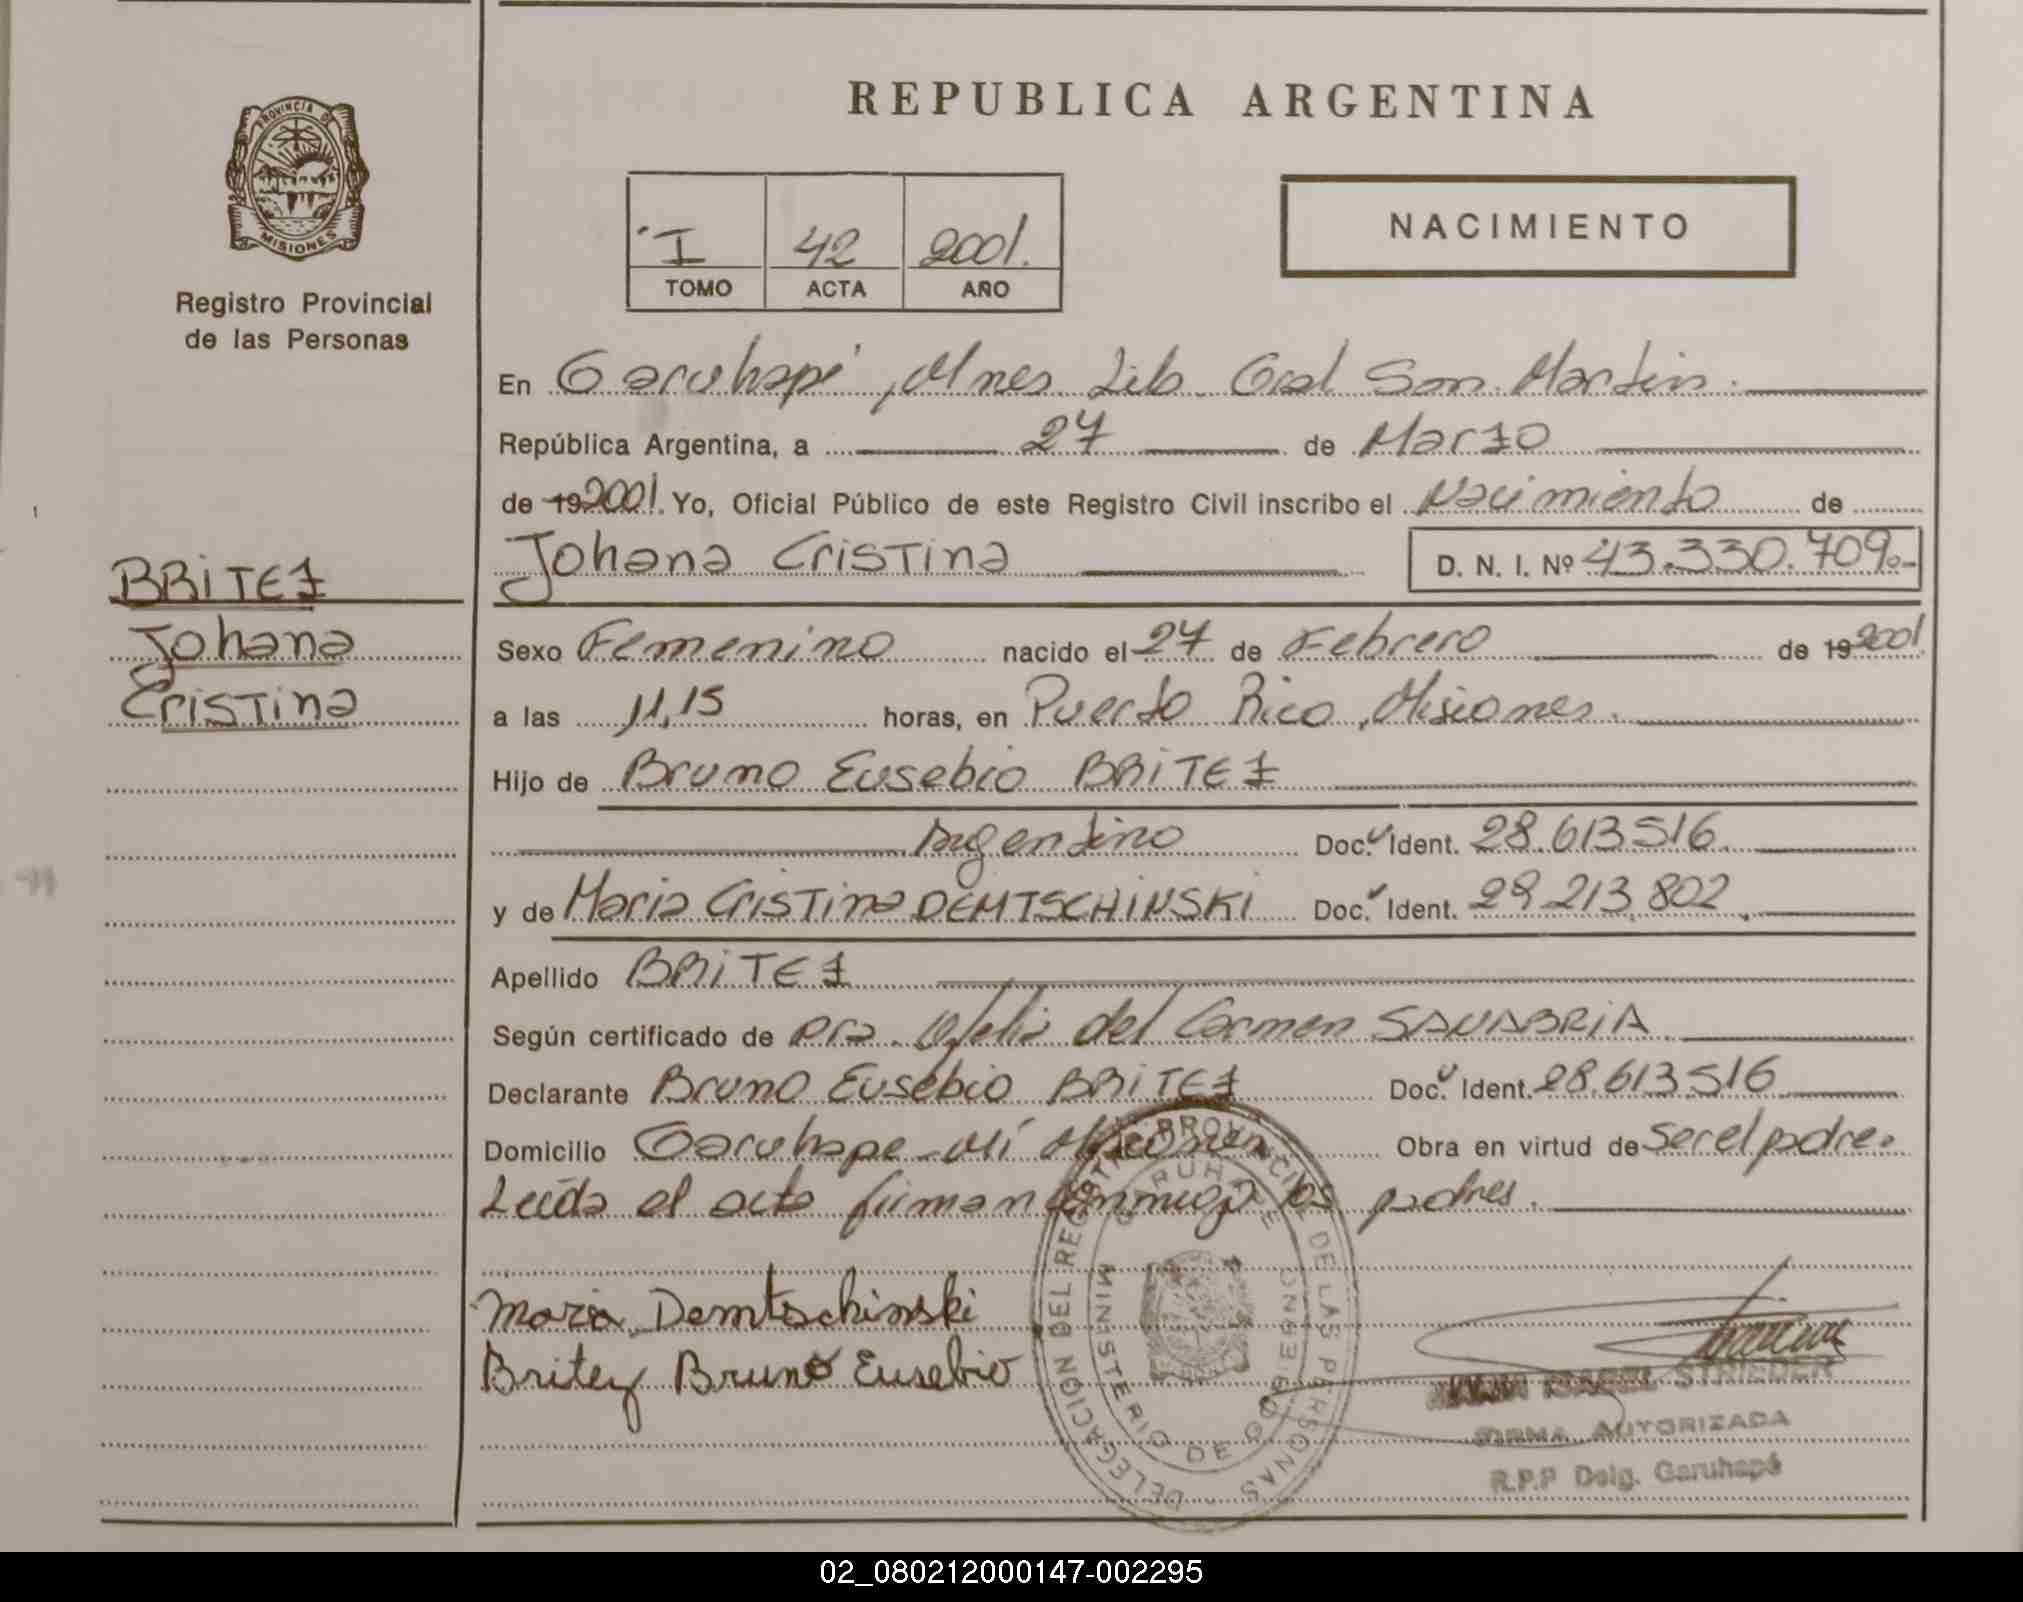 REPUBLICA ARGENTINA
PROVINCIA DE
MISIONES
Registro Provincial
de las Personas
I 42 2001.
TOMO ACTA AÑO
NACIMIENTO
En Garuhapé, Mnes. Lib. Gral San Martín.
República Argentina, a 27 de Marzo
de 192001. Yo, Oficial Público de este Registro Civil inscribo el Nacimiento de
BRITEZ
Johana
Cristina
Johana Cristina D. N. I. Nº 43.330.709.-
Sexo Femenino nacido el 27 de Febrero de 192001
a las 11,15 horas, en Puerto Rico, Misiones.
Hijo de Bruno Eusebio BRITEZ
Argentino Doc. Ident. 28.613516.
y de Maria Cristina DEMTSCHINSKI Doc. Ident. 29.213.802.
Apellido BRITEZ
Según certificado de Dra. Ofelia del Carmen SANABRIA
Declarante Bruno Eusebio BRITEZ Doc. Ident. 28.613.516
Domicilio Garuhape-Mí Misiones Obra en virtud de Ser el padre.
Leída el acta firman conmigo los padres.
Maria Demtschinski
Britez Bruno Eusebio
DELEGACION DEL REGISTRO PROVINCIAL DE LAS PERSONAS
GARUHAPE
MINISTERIO DE GOBIERNO
ISABEL STRIEDER
FIRMA AUTORIZADA
R.P.P Delg. Garuhapé
02_080212000147-002295